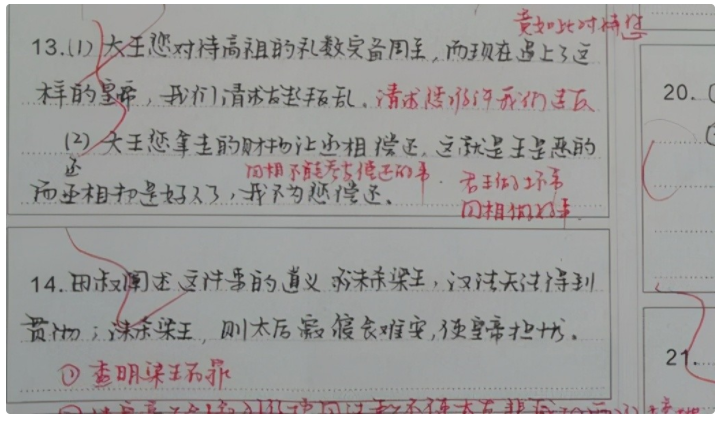 竟如此对待您
13.(1) 大王您对待高祖的礼数完备周至，而现在遇上了这
样的皇帝，我们请求去起叛乱。请求您允许我们造反
(2) 大王您拿走的财物让丞相偿还，这就是王是恶的
还
田相不能参与偿还的事。君王做坏事
而丞相却是好人了，我不为您偿还。
田相做好事
14.田叔阐述这件事的道义 不诛杀梁王，汉法无法得到
贯彻；诛杀梁王，则太后寝食难安，使皇帝担忧。
① 查明梁王的罪
20.
21.